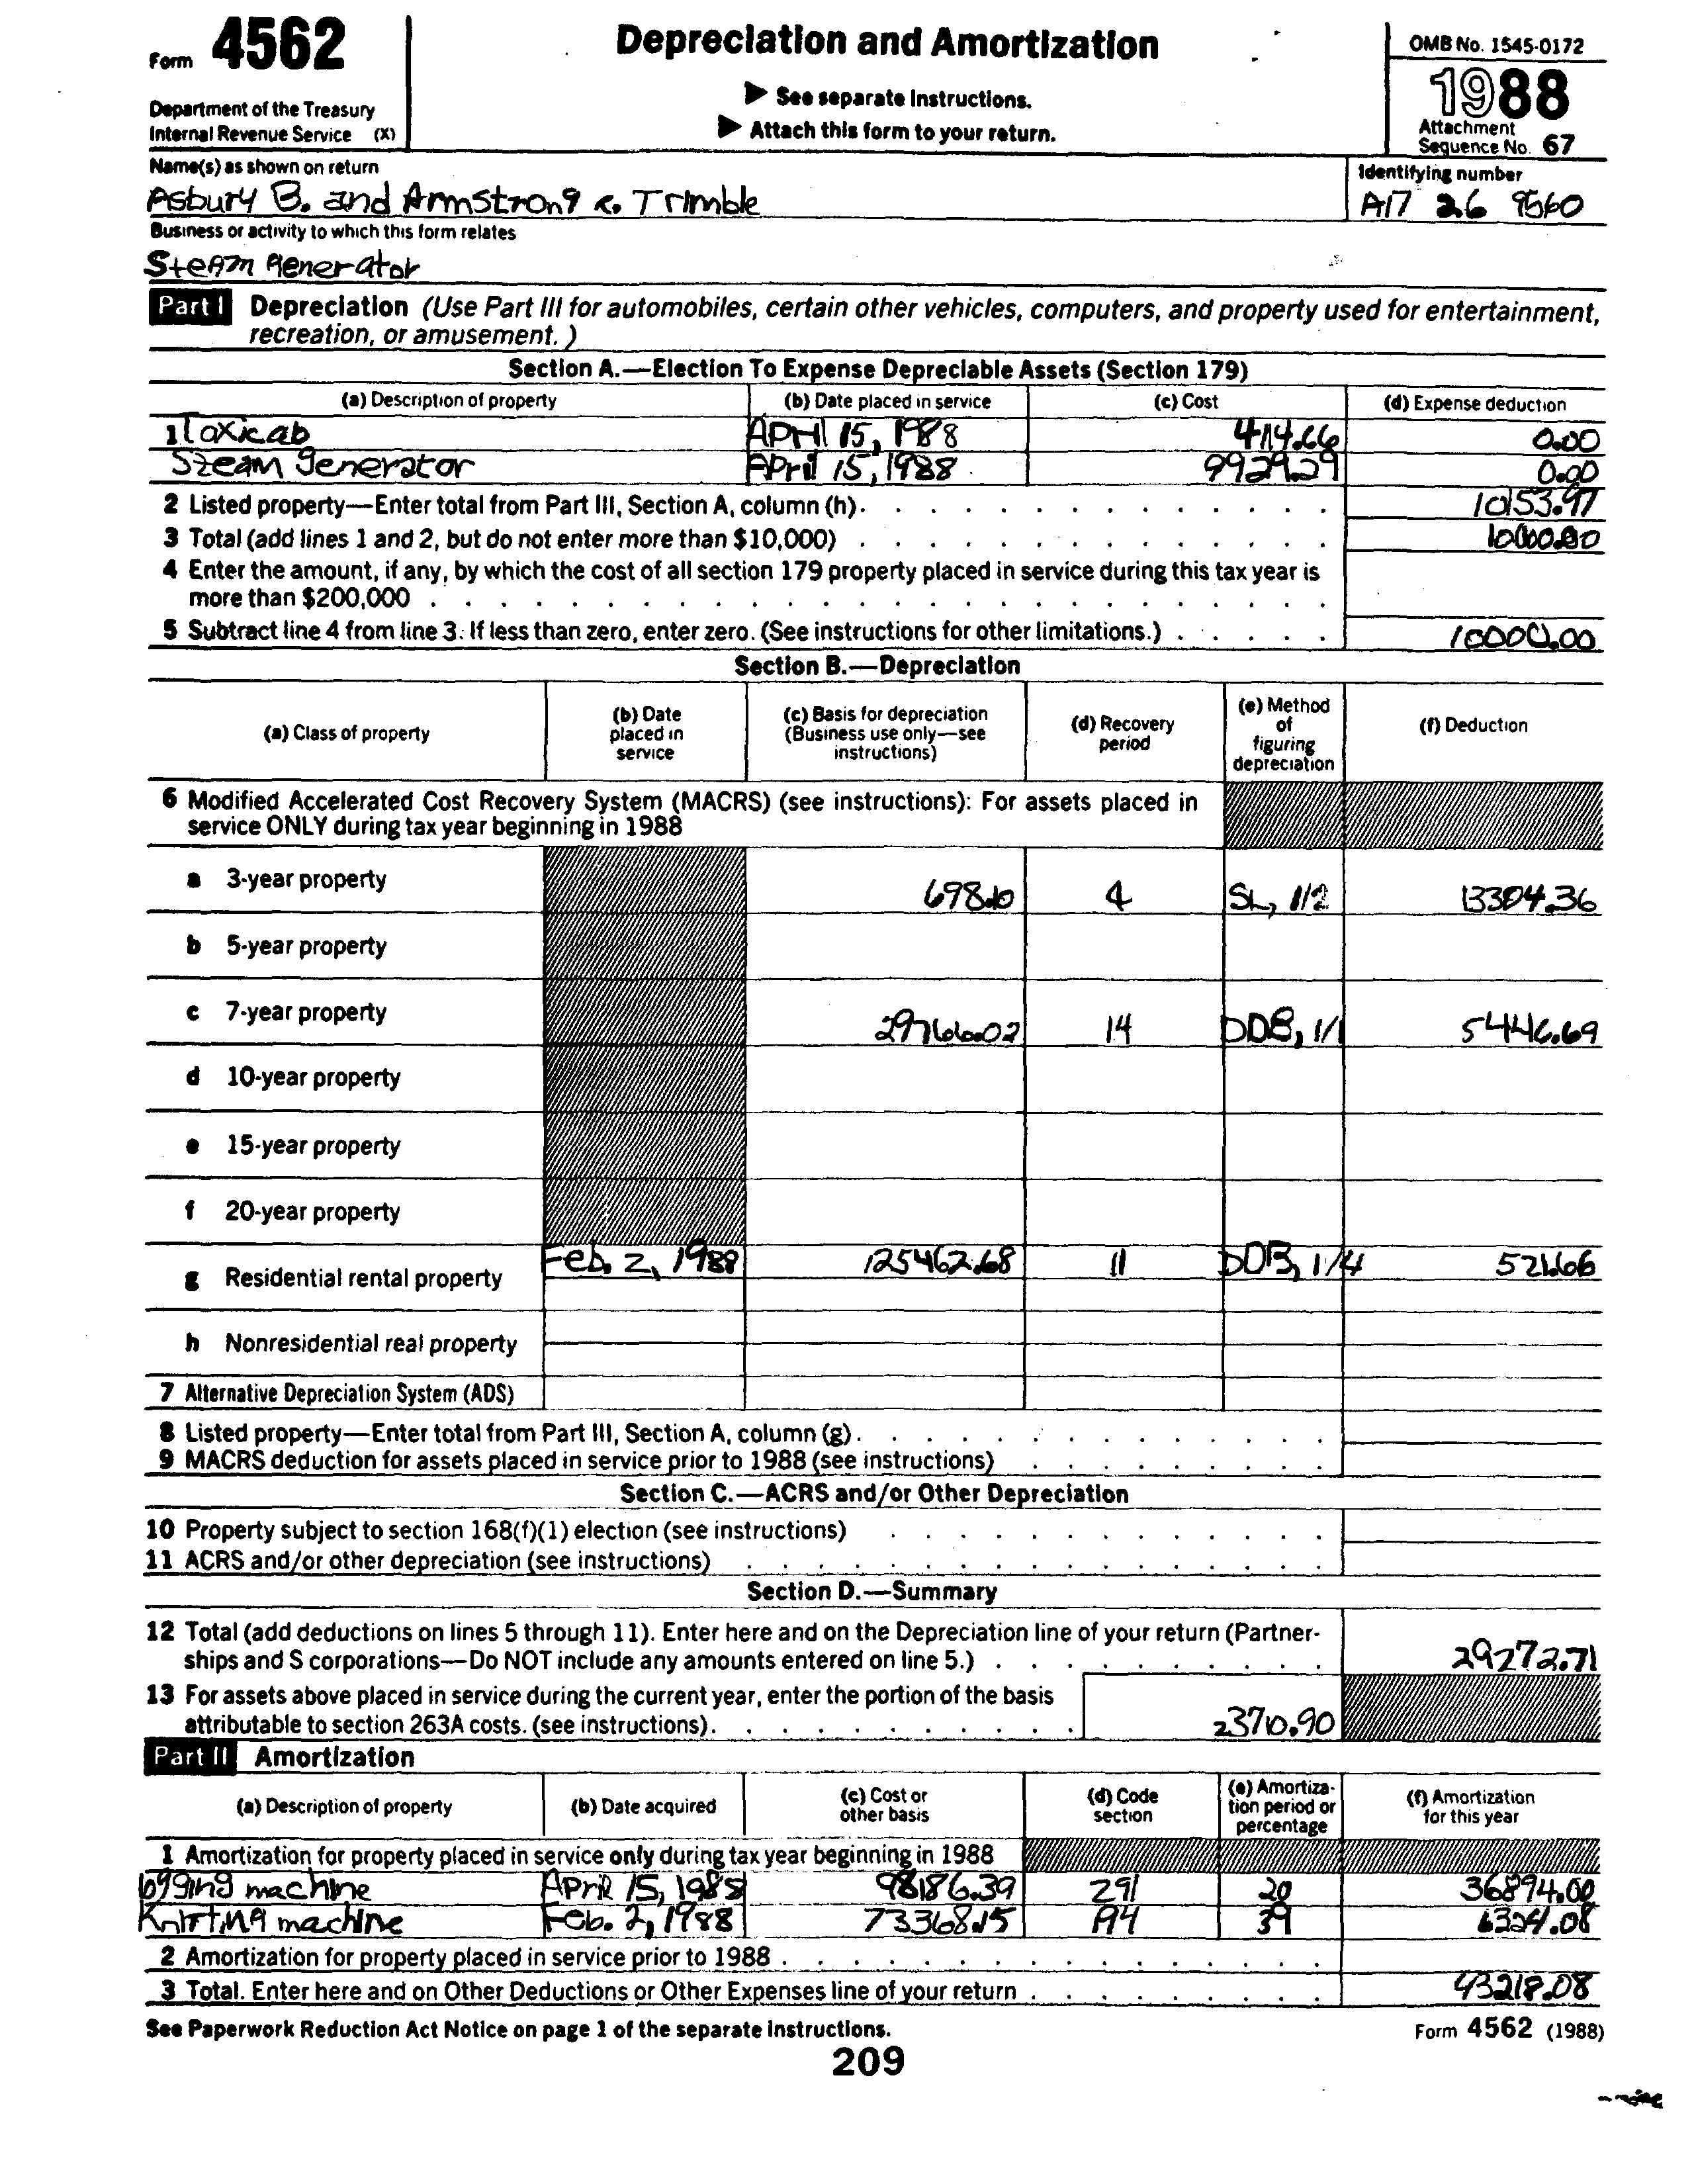 Form 4562
Department of the Treasury
Internal Revenue Service (X)
Depreciation and Amortization
▶ See separate Instructions.
▶ Attach this form to your return.
OMB No. 1545-0172
1988
Attachment
Sequence No. 67
Name(s) as shown on return
Asbury B. and Armstrong C. Trimble
Identifying number
A17 26 9560
Business or activity to which this form relates
Steam generator
Part I Depreciation (Use Part III for automobiles, certain other vehicles, computers, and property used for entertainment,
recreation, or amusement.)
Section A.—Election To Expense Depreciable Assets (Section 179)
(a) Description of property (b) Date placed in service (c) Cost (d) Expense deduction
1 Taxicab April 15, 1988 414.66 0.00
Steam generator April 15, 1988 9929.29 0.00
2 Listed property—Enter total from Part III, Section A, column (h). 10153.97
3 Total (add lines 1 and 2, but do not enter more than $10,000) 10000.00
4 Enter the amount, if any, by which the cost of all section 179 property placed in service during this tax year is
more than $200,000
5 Subtract line 4 from line 3. If less than zero, enter zero. (See instructions for other limitations.) 10000.00
Section B.—Depreciation
(a) Class of property
(b) Date
placed in
service
(c) Basis for depreciation
(Business use only—see
instructions)
(d) Recovery
period
(e) Method
of
figuring
depreciation
(f) Deduction
6 Modified Accelerated Cost Recovery System (MACRS) (see instructions): For assets placed in
service ONLY during tax year beginning in 1988
a 3-year property 698.10 4 SL, 1/2 13304.36
b 5-year property
c 7-year property 29766.02 14 DDB, 1/1 5446.69
d 10-year property
e 15-year property
f 20-year property
g Residential rental property Feb. 2, 1988 125462.68 11 DDB, 1/4 521.66
h Nonresidential real property
7 Alternative Depreciation System (ADS)
8 Listed property—Enter total from Part III, Section A, column (g).
9 MACRS deduction for assets placed in service prior to 1988 (see instructions)
Section C.—ACRS and/or Other Depreciation
10 Property subject to section 168(f)(1) election (see instructions)
11 ACRS and/or other depreciation (see instructions)
Section D.—Summary
12 Total (add deductions on lines 5 through 11). Enter here and on the Depreciation line of your return (Partner-
ships and S corporations—Do NOT include any amounts entered on line 5.) 29272.71
13 For assets above placed in service during the current year, enter the portion of the basis
attributable to section 263A costs. (see instructions). 23710.90
Part II Amortization
(a) Description of property
(b) Date acquired
(c) Cost or
other basis
(d) Code
section
(e) Amortiza-
tion period or
percentage
(f) Amortization
for this year
1 Amortization for property placed in service only during tax year beginning in 1988
machine April 15, 1988 98186.39 291 20 36894.00
Knitting machine Feb. 2, 1988 73368.15 194 39 6324.08
2 Amortization for property placed in service prior to 1988
3 Total. Enter here and on Other Deductions or Other Expenses line of your return 43218.08
See Paperwork Reduction Act Notice on page 1 of the separate Instructions.
Form 4562 (1988)
209